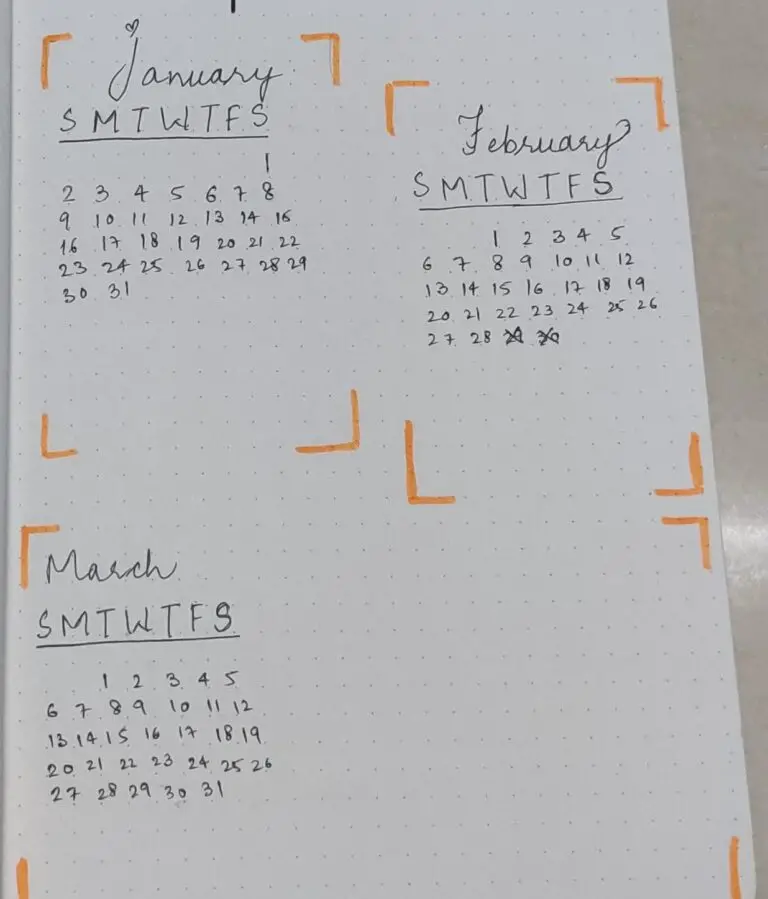 January
S M T W T F S
1
2 3 4 5 6 7 8
9 10 11 12 13 14 15
16 17 18 19 20 21 22
23 24 25 26 27 28 29
30 31
February
S M T W T F S
1 2 3 4 5
6 7 8 9 10 11 12
13 14 15 16 17 18 19
20 21 22 23 24 25 26
27 28
March
S M T W T F S
1 2 3 4 5
6 7 8 9 10 11 12
13 14 15 16 17 18 19
20 21 22 23 24 25 26
27 28 29 30 31